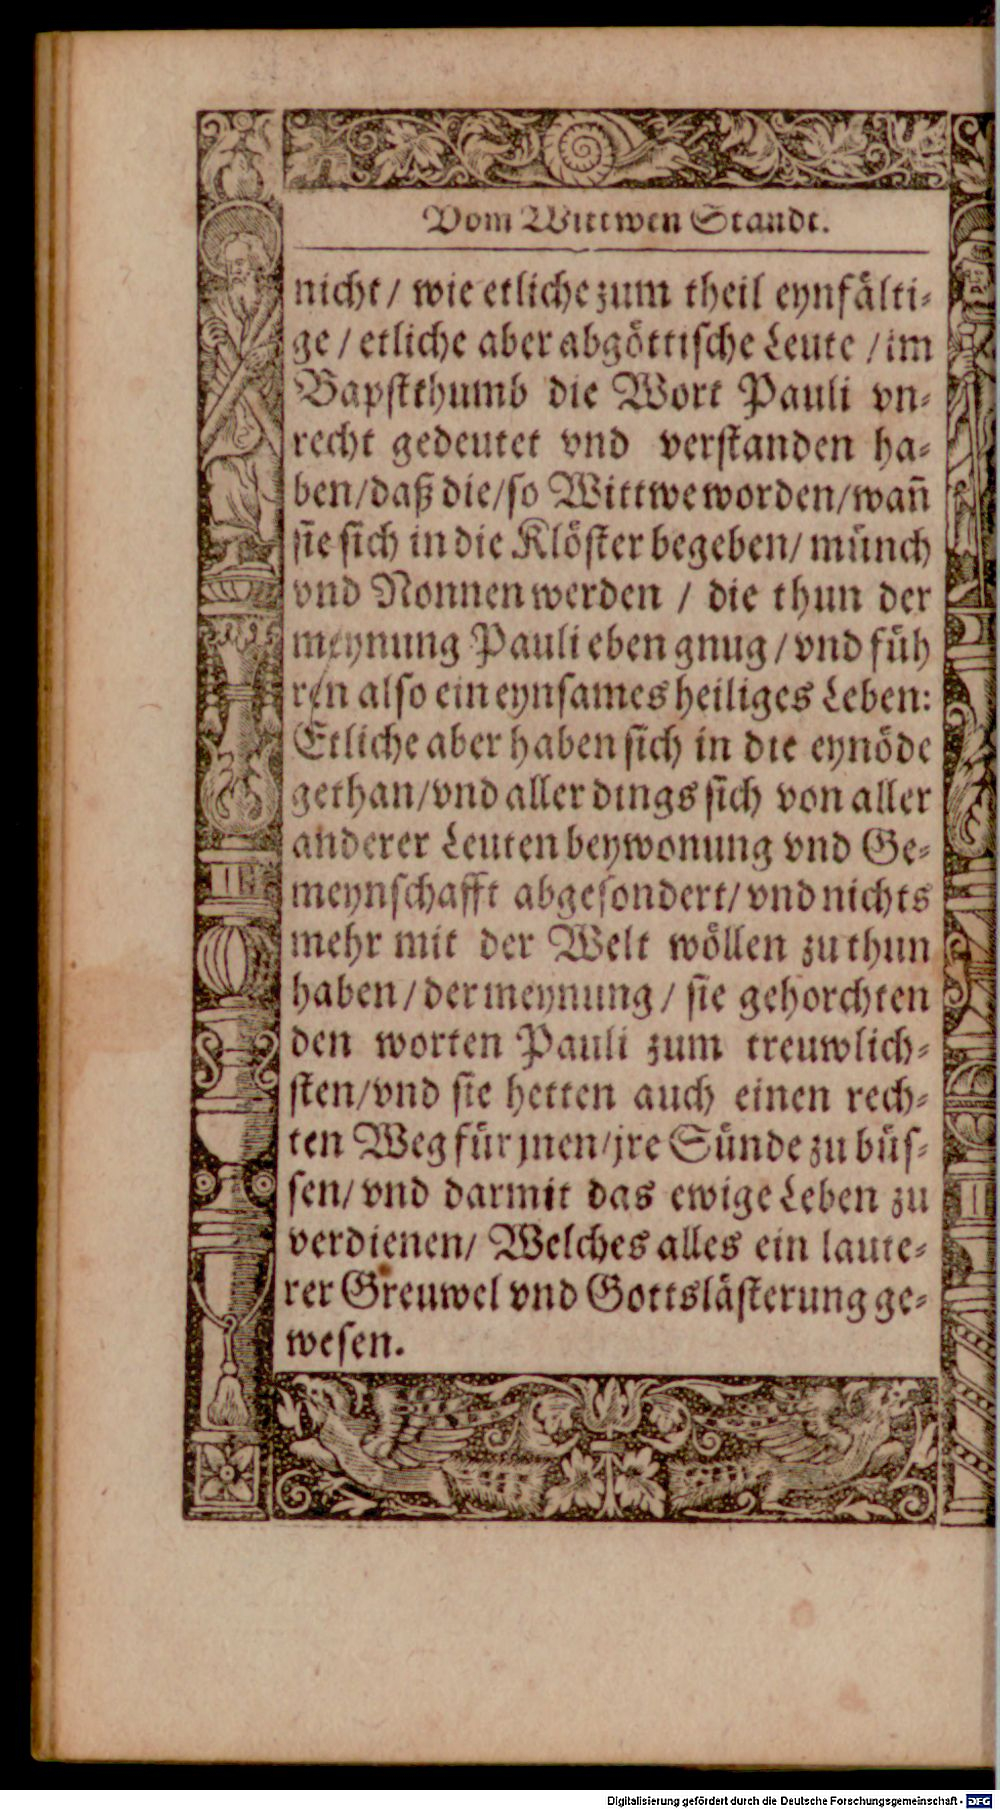 Vom Wittwen Standt.
nicht/ wie etliche zum theil eynfälti⸗
ge / etliche aber abgöttische Leute / im
Bapstthumb die Wort Pauli vn⸗
recht gedeutet vnd verstanden ha⸗
ben/daß die/so Wittwe worden/wañ
sie sich in die Klöster begeben/ münch
vnd Nonnen werden / die thun der
meynung Pauli eben gnug / vnd füh
ren also ein eynsames heiliges Leben:
Etliche aber haben sich in die eynöde
gethan/vnd aller dings sich von aller
anderer Leuten beywonung vnd Ge⸗
meynschafft abgesondert/ vnd nichts
mehr mit der Welt wöllen zu thun
haben / der meynung / sie gehorchten
den worten Pauli zum treuwlich⸗
sten/vnd sie hetten auch einen rech⸗
ten Weg für jnen/jre Sünde zu büs⸗
sen/ vnd darmit das ewige Leben zu
verdienen/ Welches alles ein laute⸗
rer Greuwel vnd Gottslästerung ge⸗
wesen.
Digitalisierung gefördert durch die Deutsche Forschungsgemeinschaft - DFG